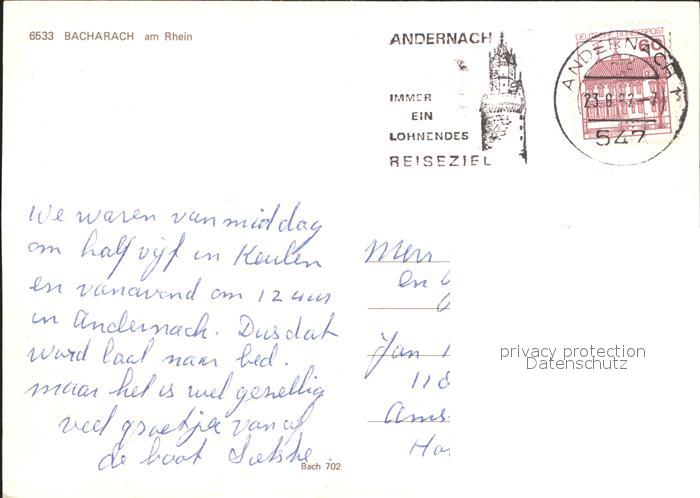 6533 BACHARACH am Rhein
ANDERNACH
IMMER
EIN
LOHNENDES
REISEZIEL
DEUTSCHE BUNDESPOST
60
ANDERNACH 1
23.8.82
547
We waren vanmiddag
om half vijf in Keulen
en vanavond om 12 uur
in Andernach. Dus dat
word laat naar bed.
maar het is wel gezellig
veel groetjes vanaf
de boot
Mevr
en
Jan
118
Ams
Ho
privacy protection
Datenschutz
Bach 702